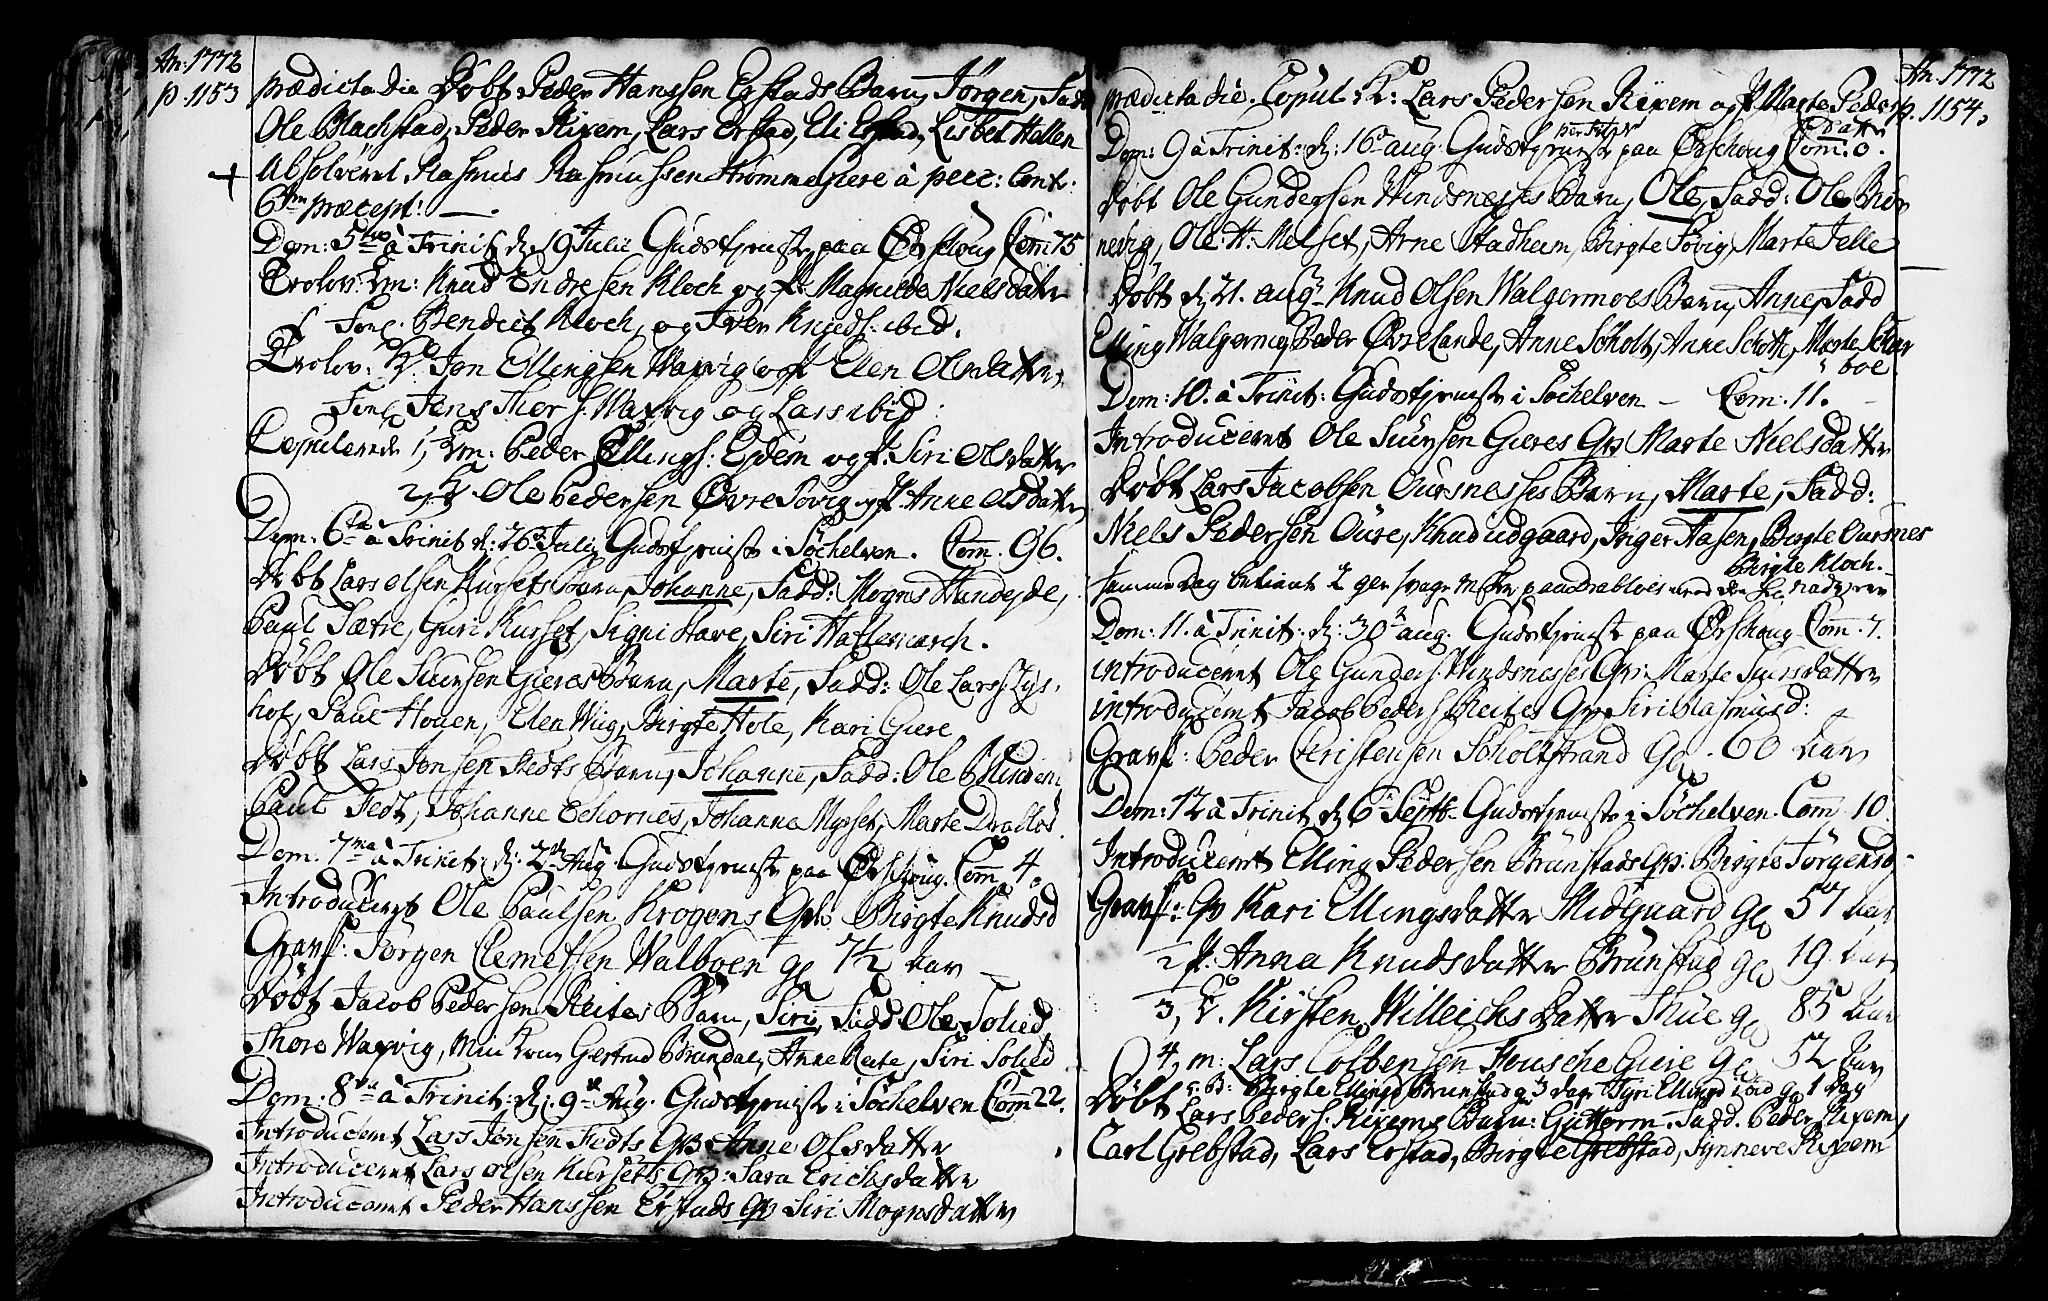 An: 1772
p. 1153
prædicta die Døbt Peder Hanssen Erstads Barn, Jørgen, Fadd
Ole Blachstad, Peder Rixem, Lars Erstad, Eli Erstad, Lisbet Hallen
+ Absolveret Rasmus Rasmussen Strømmegiere à pecc: Contr:
6tm præcept:
Dom: 5ta à Trinit d: 19 Julii Gudstjenest paa Ørschoug Com: 75
Trolov: Km: Knud Endresen Kloch og P. Magnilde Nielsdatter
Forl. Bendict Kloch, og Iver Knuds: ibid.
Trolov: K: Jon Ellingsen Waxvig og P Elen Olsdatter,
Forl. Jens Thors: Waxvig og Lars ibid:
Copulerede 1, Km: Peder Ellings: Eydem og P. Siri Olsdatter
2, K Ole Pedersen Øvre Søvig og P. Anne Olsdatter
Dom: 6ta à Trinit d: 26 Julii Gudstjenest i Søchelven. Com. 96.
Døbt Lars Olsen Kursets Barn, Johanne, Fadd: Mogns Hundeyde,
Paul Sætre, Guri Kurset, Signi Stave, Siri Hatlemarch.
Døbt Ole Siursen Gieres Barn, Marte, Fadd: Ole Lars: Lys-
hol, Paul Houen, Elen Wiig, Birgte Hole, Kari Giere
Døbt Lars Jonsen Fedts Barn, Johanne, Fadd: Ole Blinden
Paul Fedt, Johanne Echornes, Johanna Mysset, Marte Drablos
Dom: 7ma à Trinit: d: 2 Aug Gudstjenest paa Ørschoug. Com 4.
Introduceret Ole Paulsen Krogens Qv: Birgte Knudsd
Gravf: Jørgen Clemetsen Walboen gl 7½ Aar
Døbt Jacob Pedersen Reites Barn, Siri, Fadd Ole Solied,
Thore Waxvig, min Kone Giertrud Brundal, Anne Reite, Siri Solied
Dom: 8va à Trinit: d: 9 Aug. Gudstjenest i Søchelven Com 22.
Introduceret Lars Jonsen Fedts Qv Anne Olsdatter
Introduceret Lars Olsen Kursets Qv: Sara Erichsdatter
Introduceret Peder Hanssen Erstads Qv Siri Mognsdatter
An. 1772
p. 1154.
prædicta die. Copul: K: Lars Pedersen Rixem og P Marte Peders
datter
Dom: 9 à Trinit: d: 16 aug. Gudstjenest paa Ørschoug Com. 0.
Døbt Ole Gundersen Windsnesses Barn, Ole, Fadd: Ole Brun
nevig, Ole: H: Melset, Arne Stadheim, Birgte Søvig, Marte Jelle
Døbt d: 21. aug: Knud Olsen Walgermoes Barn, Anne, Fadd
Elling Walgermo, Peder Øvrelande, Anne Scholt, Anne Scholt, Marte
boe
Dom: 10. à Trinit: Gudstjenest i Søchelven – Com: 11.
Introduceret Ole Siursen Gieres Qv Marte Nielsdatter
Døbt Lars Jacobsen Oursnesses Barn, Marte, Fadd:
Niels Pedersen Oure, Knud udgaard, Inger Aasen, Birgte Oursnes
Birgte Kloch.
samme Dag betient 2 paa Drabloes med den H: nadveren
Dom: 11. à Trinit: d: 30 aug. Gudstjenest paa Ørschoug Com. 7.
introduceret Ole Gunders: Windsnesses Qv: Marte Siursdatter
introduceret Jacob Peders Reites Qv Siri Rasmusd:
Gravf: Peder Christensen Scholtstrand Gl. 60 Aar
Dom: 12 à Trinit d: 6 Septb. Gudstjenest i Søchelven. Com 10.
Introduceret Elling Pedersen Brunstads Qv: Birgte Jørgensd.
Gravf: Qv Kari Ellingsdatter Midgaard gl 57 Aar
2 P. Anna Knudsdatter Brunstad gl 19 Aar
3, K. Kirsten Willeichsdatter Thue gl 85 Aar
4, m: Lars Colbensen Houschegiere gl 52 Aar
5. B: Birgte Ellingsd Brunstad gl 3 dag Syri Ellingsd ibid gl 1 Dag
Døbt Lars Peders: Rixems Barn: Guttorm. Fadd. Peder Rixem,
Carl Grebstad, Lars Erstad, Birgte Grebstad, Synneve Rixem